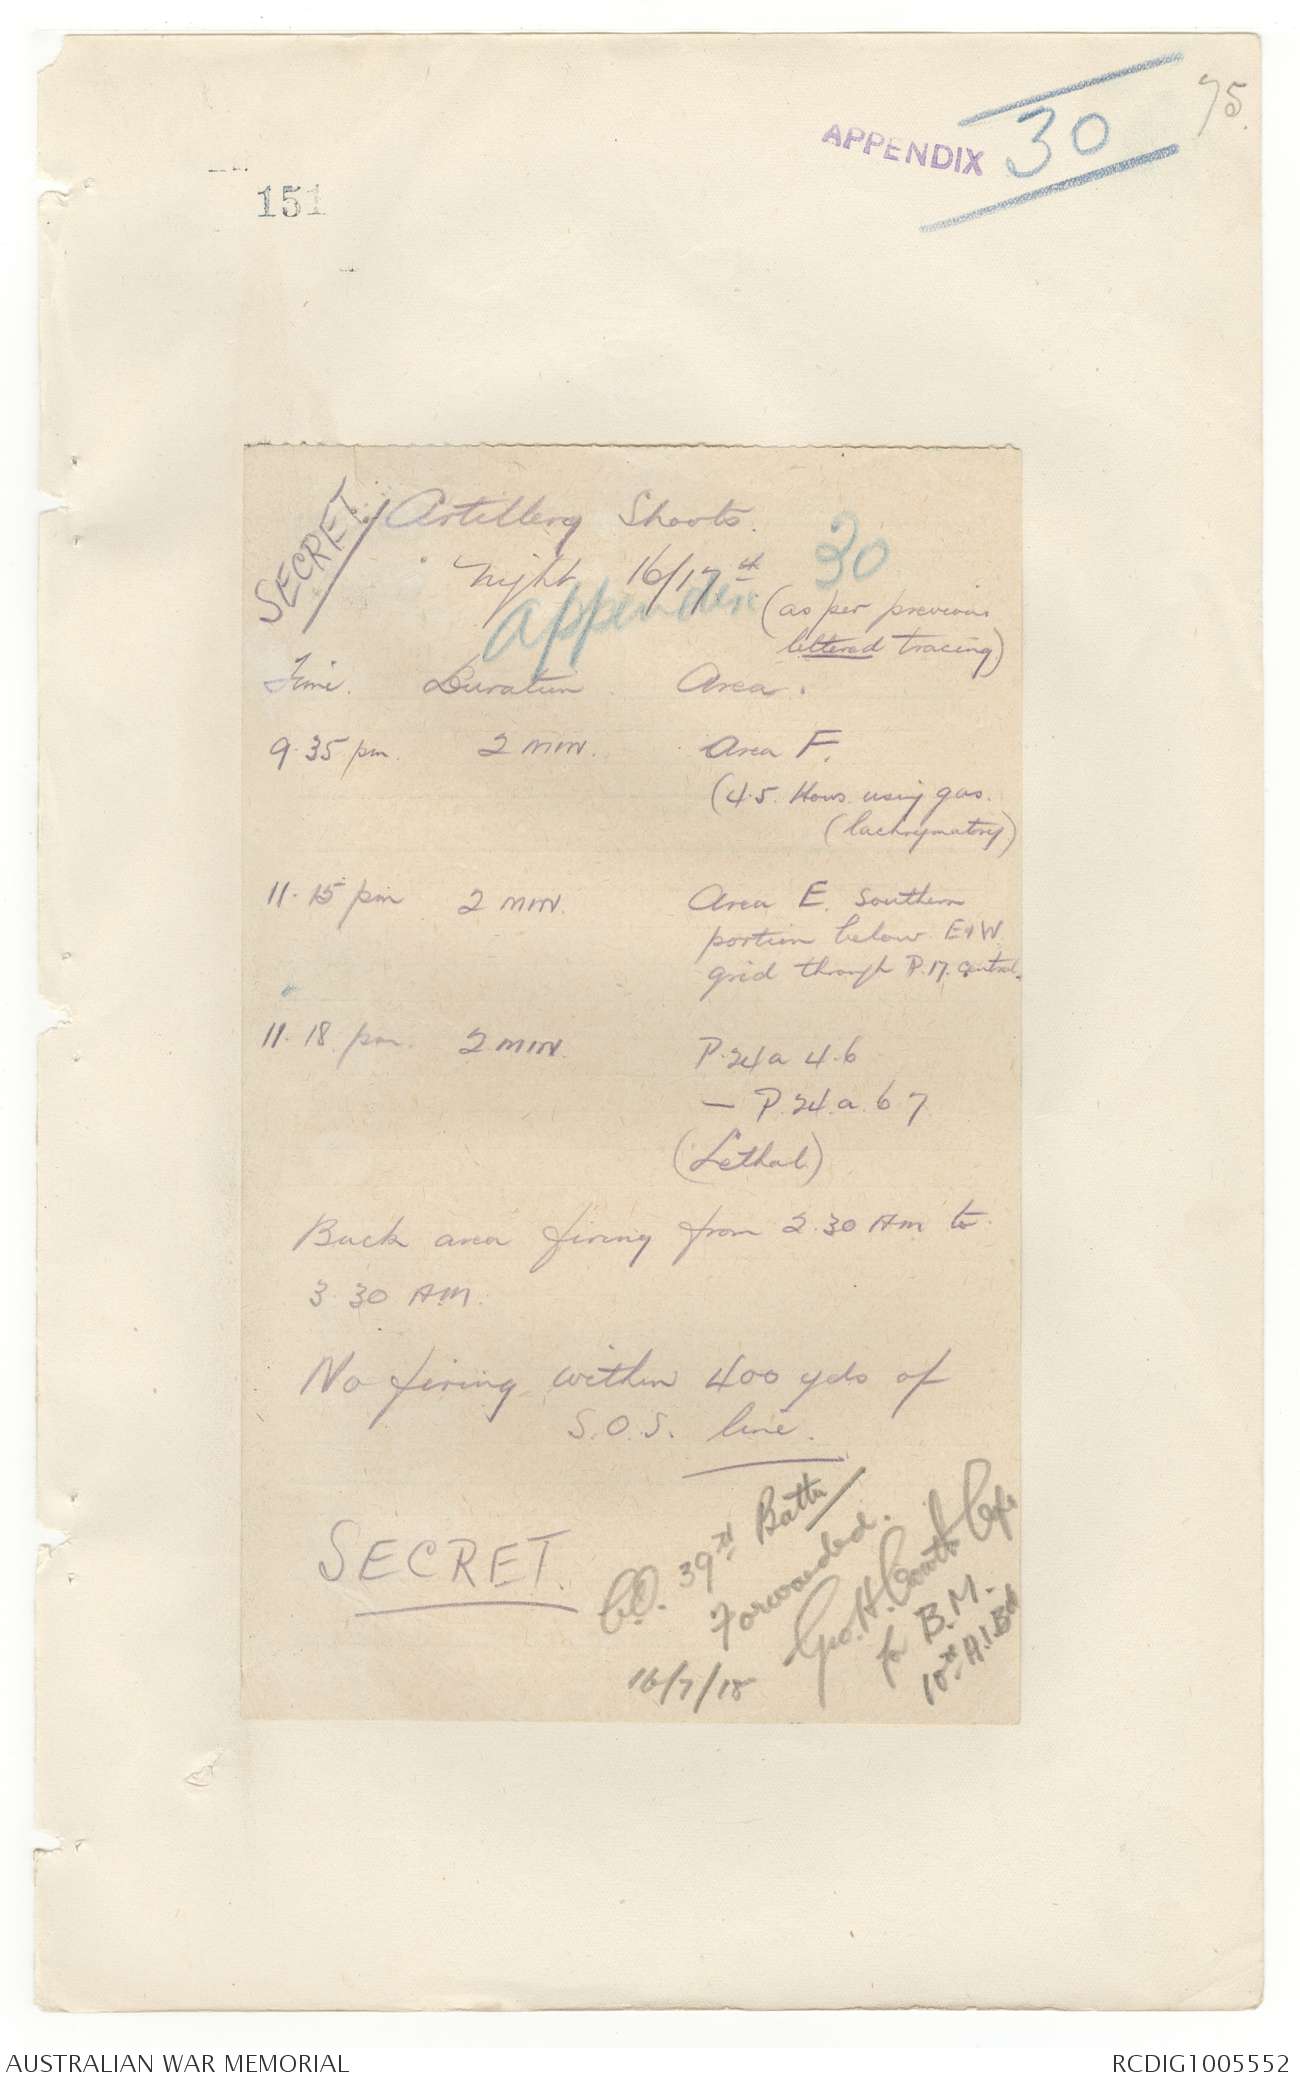 75.
APPENDIX 30
151
SECRET
Artillery Shoots.
Night 16/17th
Appendix 30
(as per previous
lettered tracing)
Time. Duration. Area.
9.35 pm. 2 min. Area F.
(4.5. Hows. using gas.
(lachrymatory)
11.15 pm 2 min. Area E. Southern
portion below E & W
grid through P.17. central.
11.18 pm. 2 min. P.24a 4.6
— P.24.a.6.7
(Lethal)
Back area firing from 2.30 AM to
3.30 AM.
No firing within 400 yds of
S.O.S. line.
SECRET.
C.O. 39th Battn
Forwarded.
Geo. H.
for B.M.
10th A.I.Bde
16/7/18
AUSTRALIAN WAR MEMORIAL
RCDIG1005552